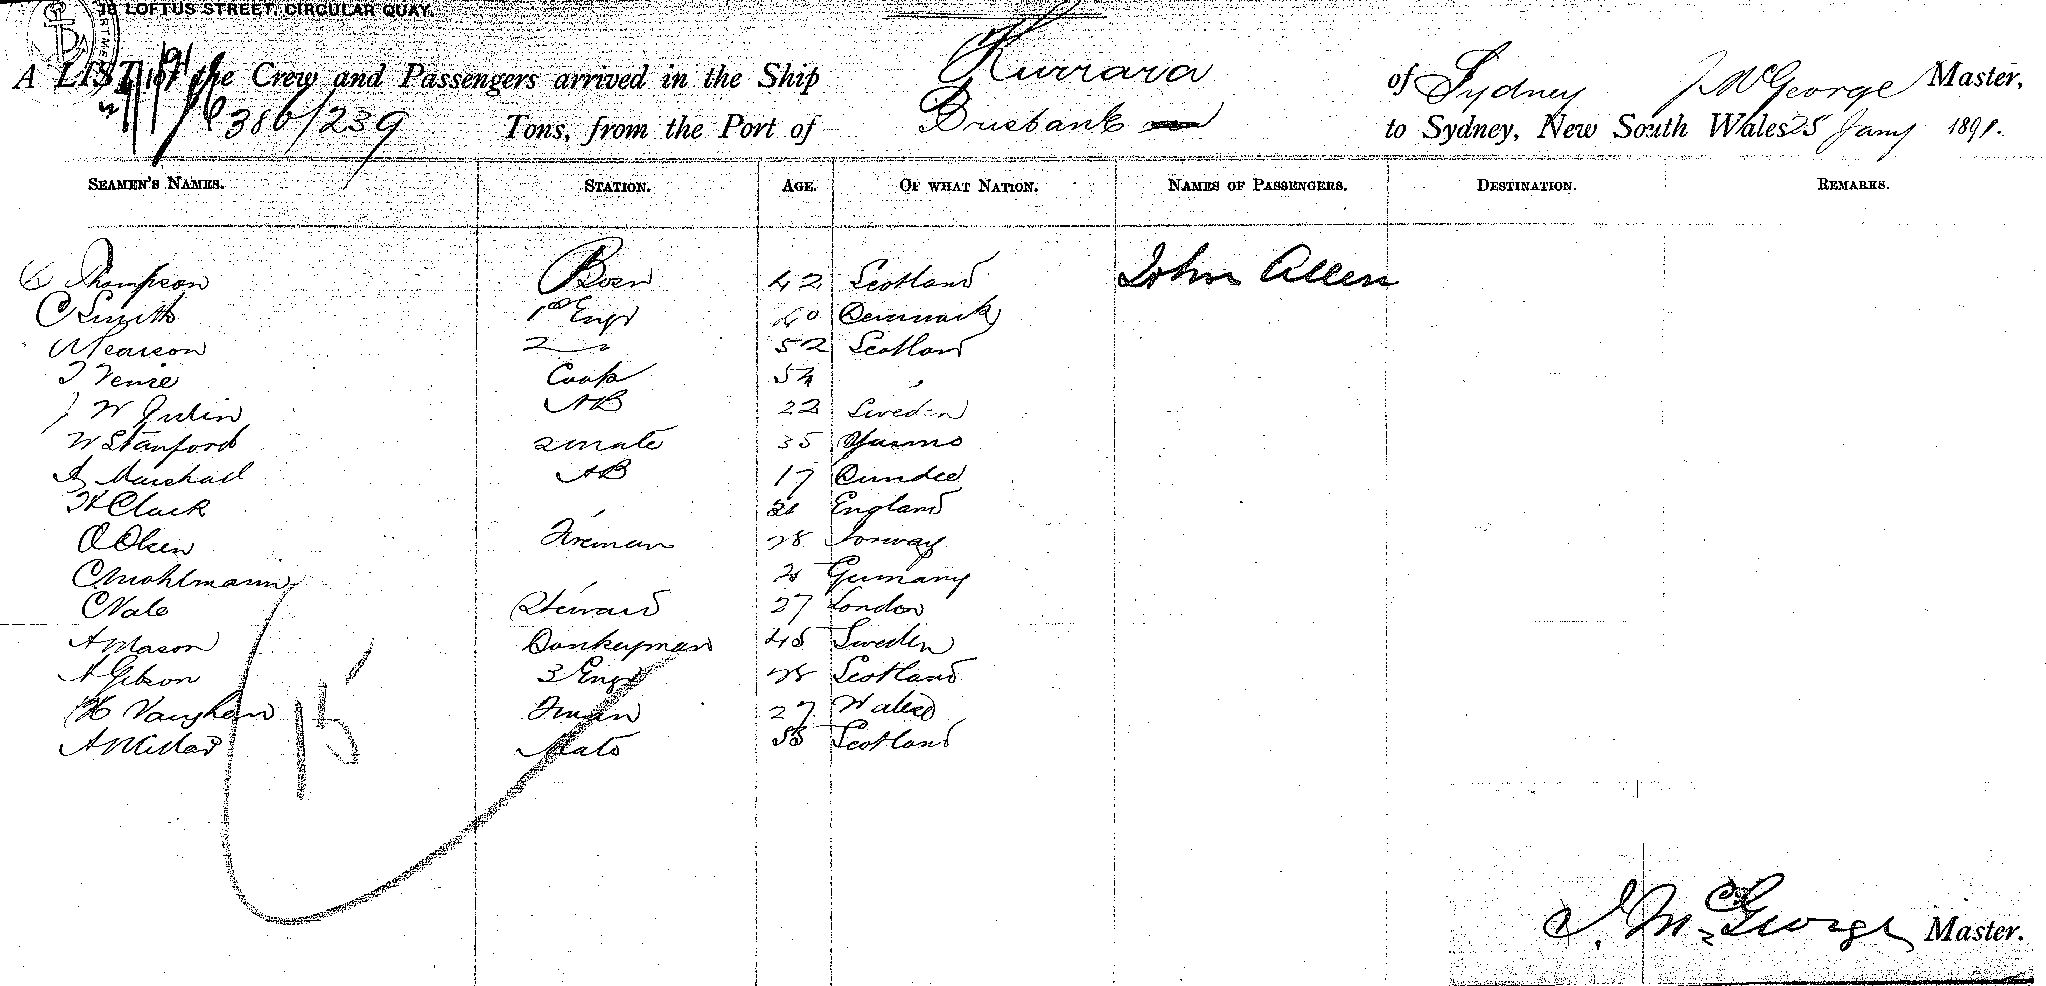 18 LOFTUS STREET, CIRCULAR QUAY.
A LIST of the Crew and Passengers arrived in the Ship Kurrara of Sydney J McGeorge Master,
386/239 Tons, from the Port of Brisbane to Sydney, New South Wales 25 Jany 1891.
SEAMEN'S NAMES. STATION. AGE. OF WHAT NATION. NAMES OF PASSENGERS. DESTINATION. REMARKS.
C Thompson Bosn 42 Scotland John Allen
C Smith 1st Engr 40 Denmark
Pearson 2 " 52 Scotland
Cook 54 "
J W AB 22 Sweden
W Stanford 2 mate 35
A Marshall AB 17 Dundee
H Clark " 21 England
O Olsen Fireman 28 Norway
C Mohlmann Germany
C Vale Steward 27 London
A Mason Donkeyman 45 Sweden
A Gibson 3 Engr 28 Scotland
H Vaughan Fman 27 Wales
A Millar Mate Scotland
15
J. McGeorge Master.